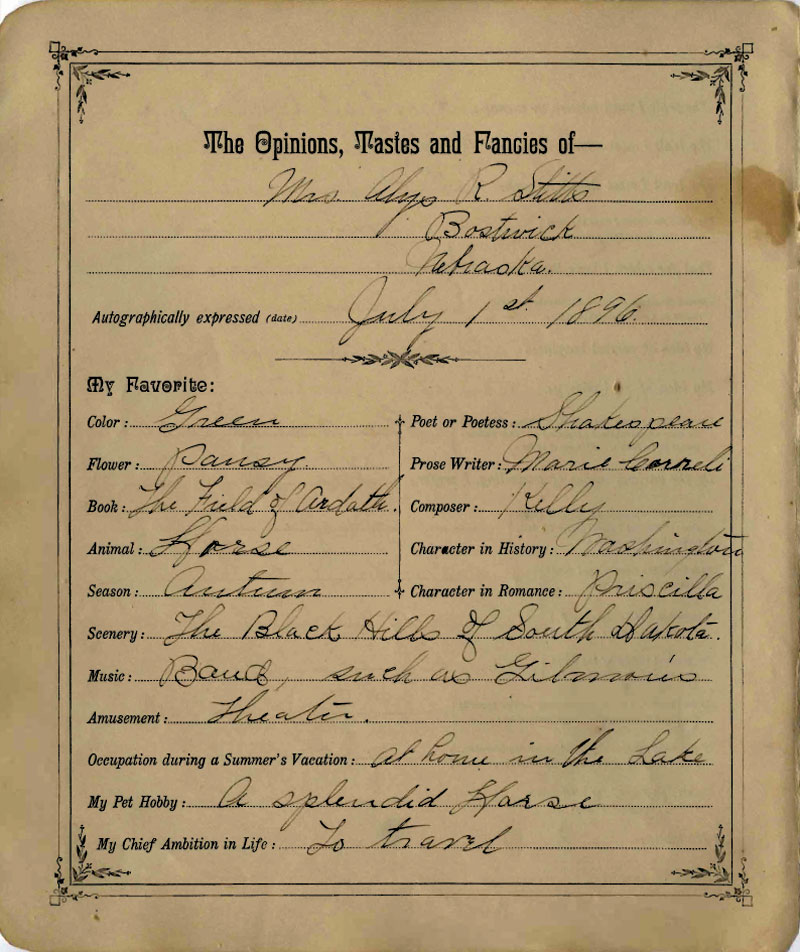 The Opinions, Tastes and Fancies of—
Mrs. Alys R. Stitts
Bostwick
Nebraska.
Autographically expressed (date) July 1st. 1896.
My Favorite:
Color: Green
Flower: Pansy.
Book: The Field of Ardath.
Animal: Horse
Season: Autumn
Poet or Poetess: Shakespeare
Prose Writer: Marie Correli
Composer: Kelly
Character in History: Washington
Character in Romance: Priscilla
Scenery: The Black Hills of South Dakota.
Music: Band, such as Gilmores
Amusement: Theater.
Occupation during a Summer's Vacation: at home in the Lake
My Pet Hobby: A splendid Horse
My Chief Ambition in Life: To travel